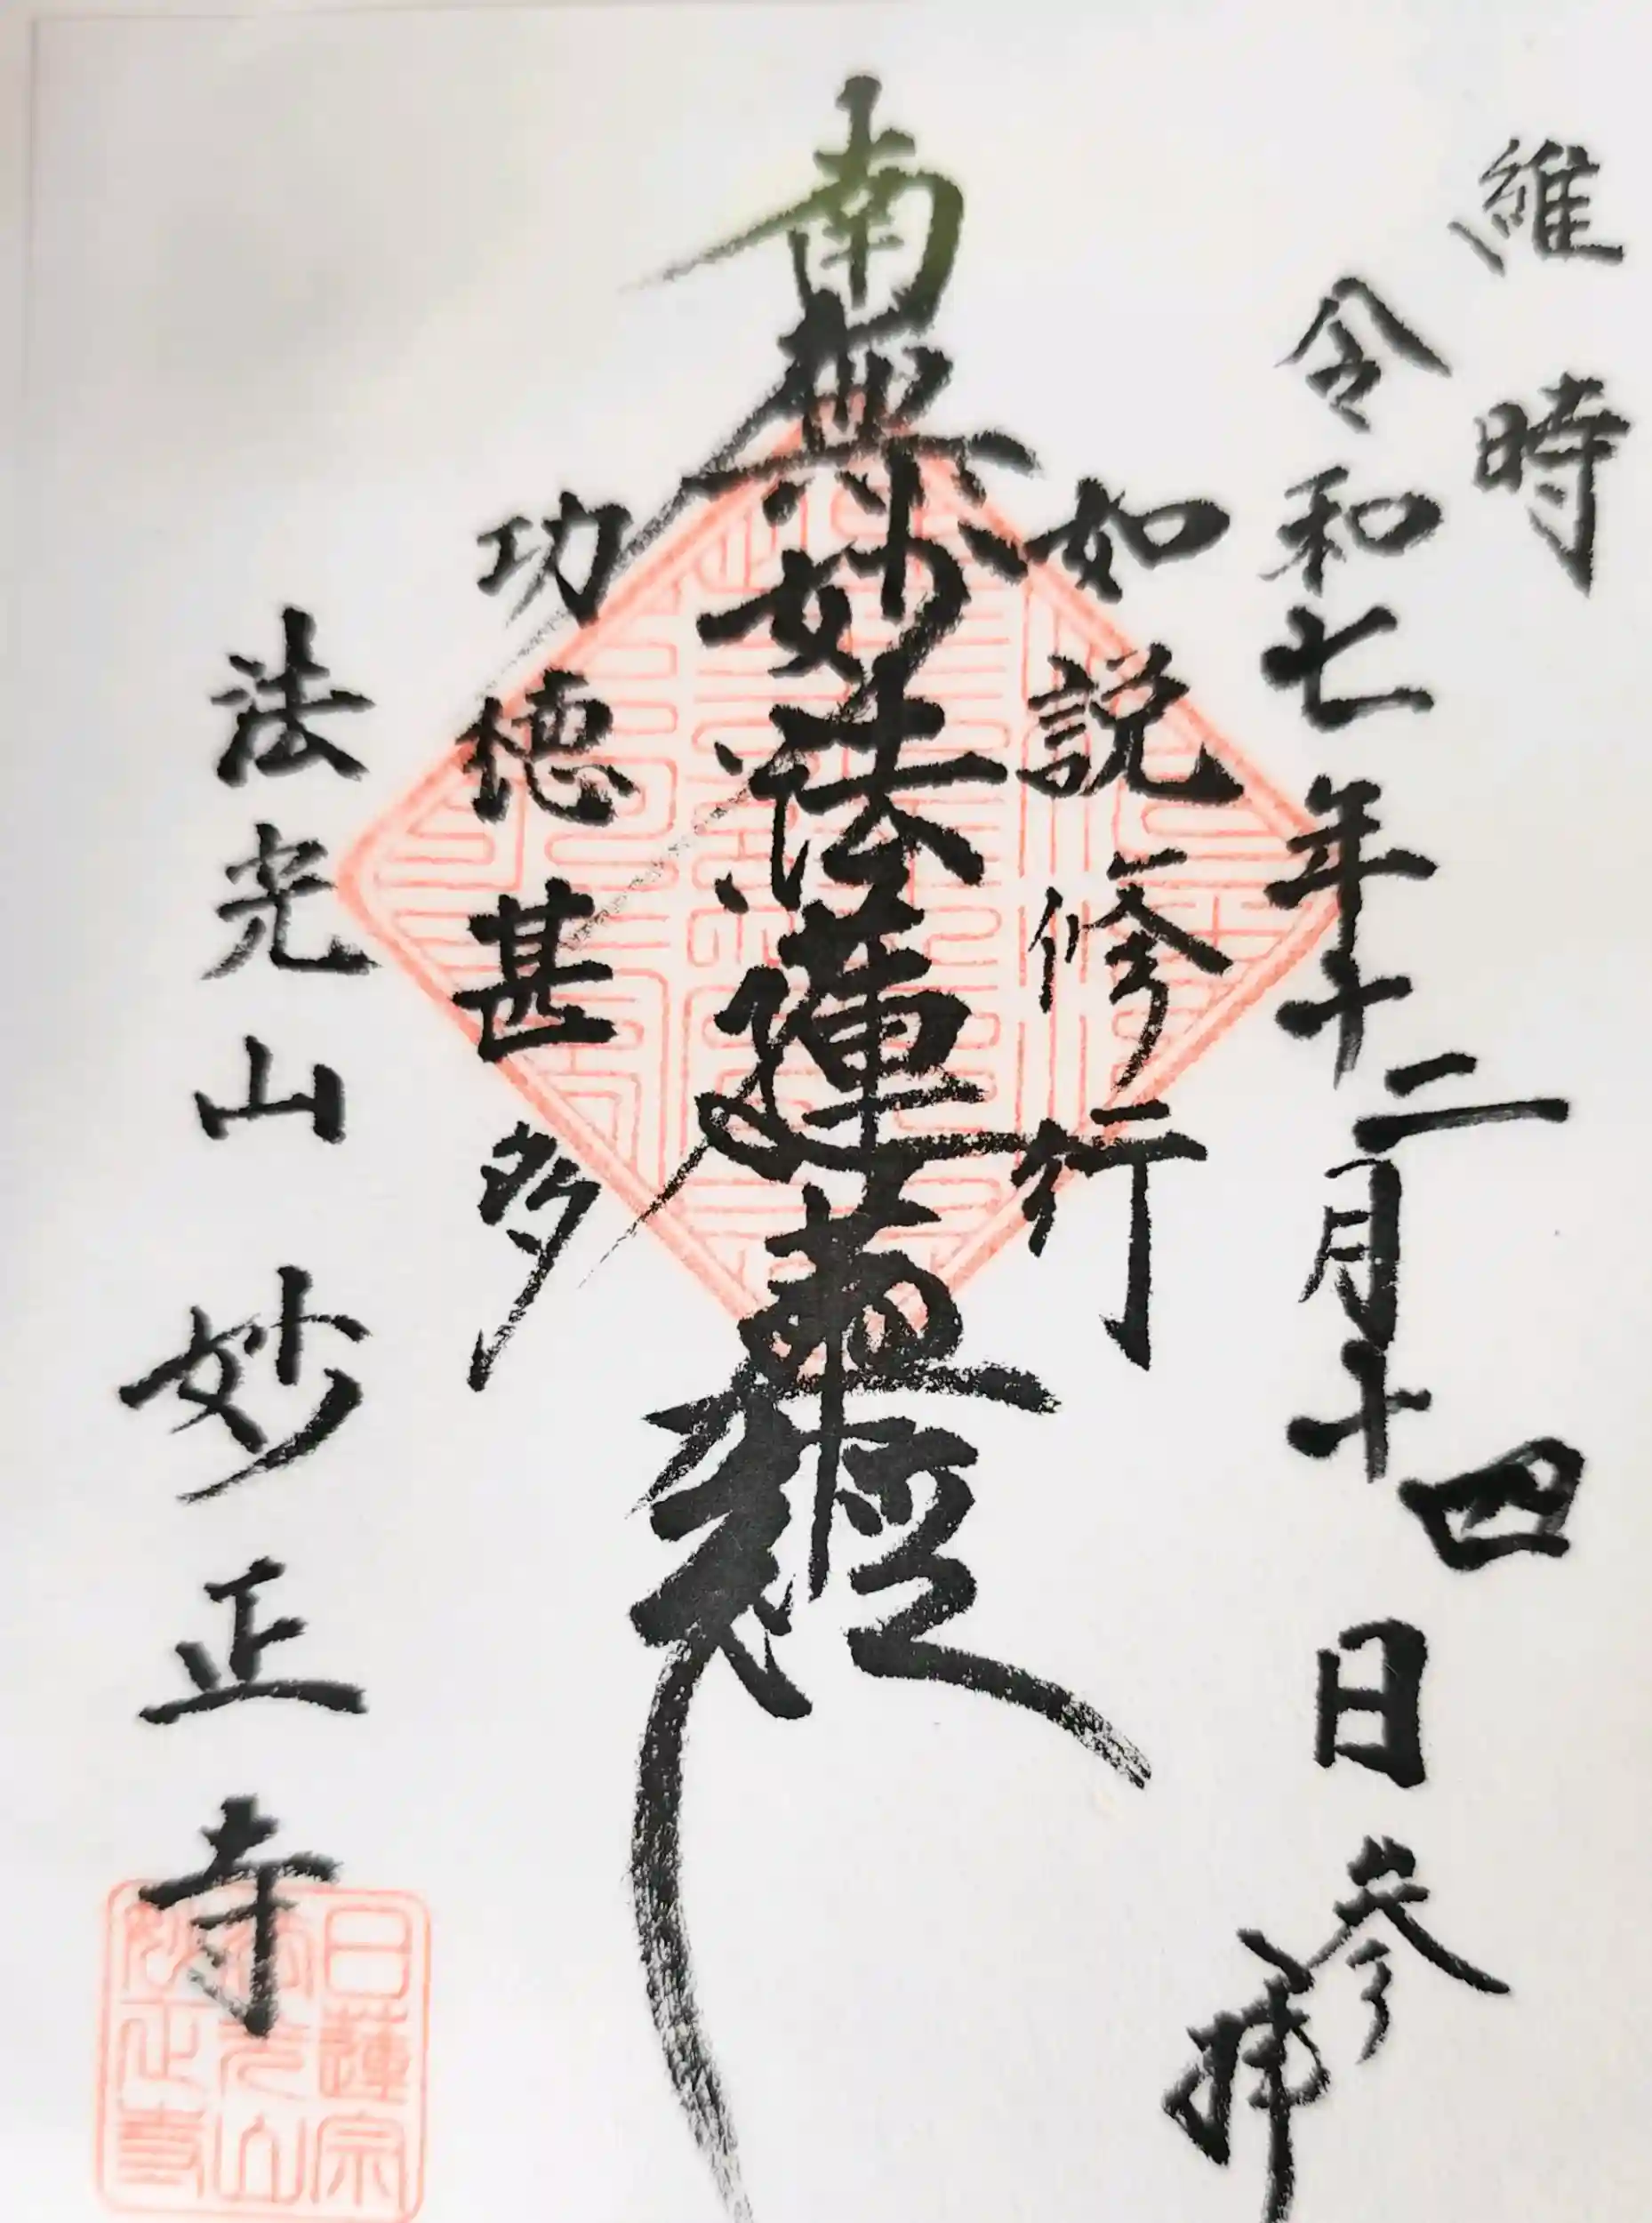 維時
令和七年十二月十四日参拝
如説修行
南無妙法蓮華経
功徳甚多
法光山妙正寺
日蓮宗
法光山
妙正寺